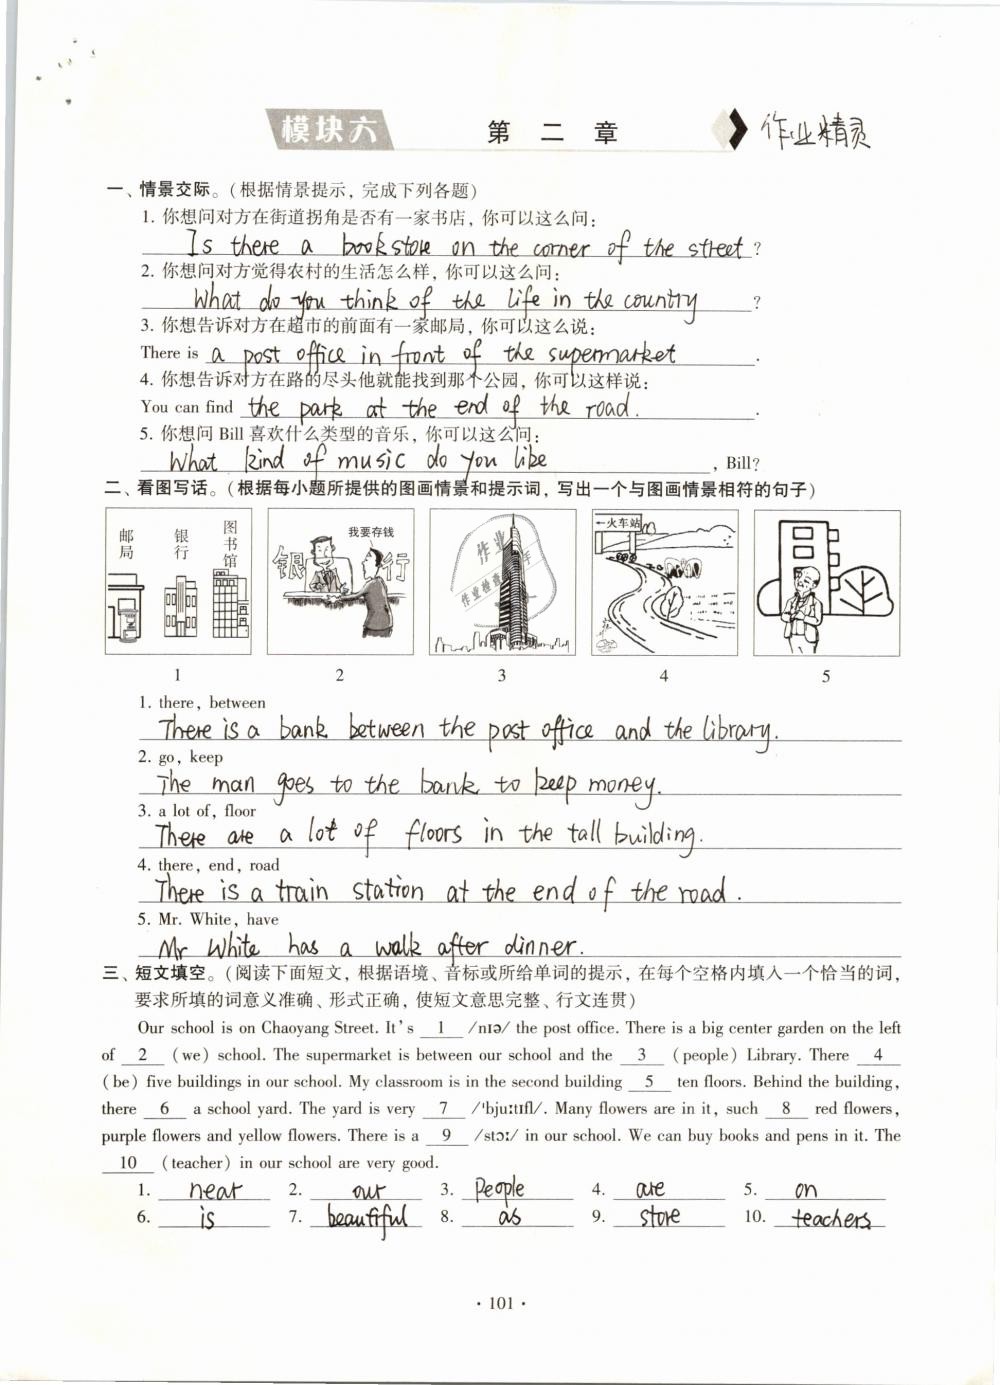 模块六 第二章 作业精灵
一、情景交际。(根据情景提示, 完成下列各题)
1. 你想问对方在街道拐角是否有一家书店, 你可以这么问:
Is there a bookstore on the corner of the street ?
2. 你想问对方觉得农村的生活怎么样, 你可以这么问:
What do you think of the life in the country ?
3. 你想告诉对方在超市的前面有一家邮局, 你可以这么说:
There is a post office in front of the supermarket .
4. 你想告诉对方在路的尽头他就能找到那个公园, 你可以这样说:
You can find the park at the end of the road. .
5. 你想问 Bill 喜欢什么类型的音乐, 你可以这么问:
What kind of music do you like , Bill?
二、看图写话。(根据每小题所提供的图画情景和提示词, 写出一个与图画情景相符的句子)
邮局 银行 图书馆
我要存钱
银行
作业
作业检查
←火车站
1 2 3 4 5
1. there, between
There is a bank between the post office and the library.
2. go, keep
The man goes to the bank to keep money.
3. a lot of, floor
There are a lot of floors in the tall building.
4. there, end, road
There is a train station at the end of the road .
5. Mr. White, have
Mr White has a walk after dinner.
三、短文填空。(阅读下面短文, 根据语境、音标或所给单词的提示, 在每个空格内填入一个恰当的词,
要求所填的词意义准确、形式正确, 使短文意思完整、行文连贯)
Our school is on Chaoyang Street. It's 1 /nɪə/ the post office. There is a big center garden on the left
of 2 (we) school. The supermarket is between our school and the 3 (people) Library. There 4
(be) five buildings in our school. My classroom is in the second building 5 ten floors. Behind the building,
there 6 a school yard. The yard is very 7 /'bju:tɪfl/. Many flowers are in it, such 8 red flowers,
purple flowers and yellow flowers. There is a 9 /stɔ:/ in our school. We can buy books and pens in it. The
10 (teacher) in our school are very good.
1. near 2. our 3. People 4. are 5. on
6. is 7. beautiful 8. as 9. store 10. teachers
· 101 ·